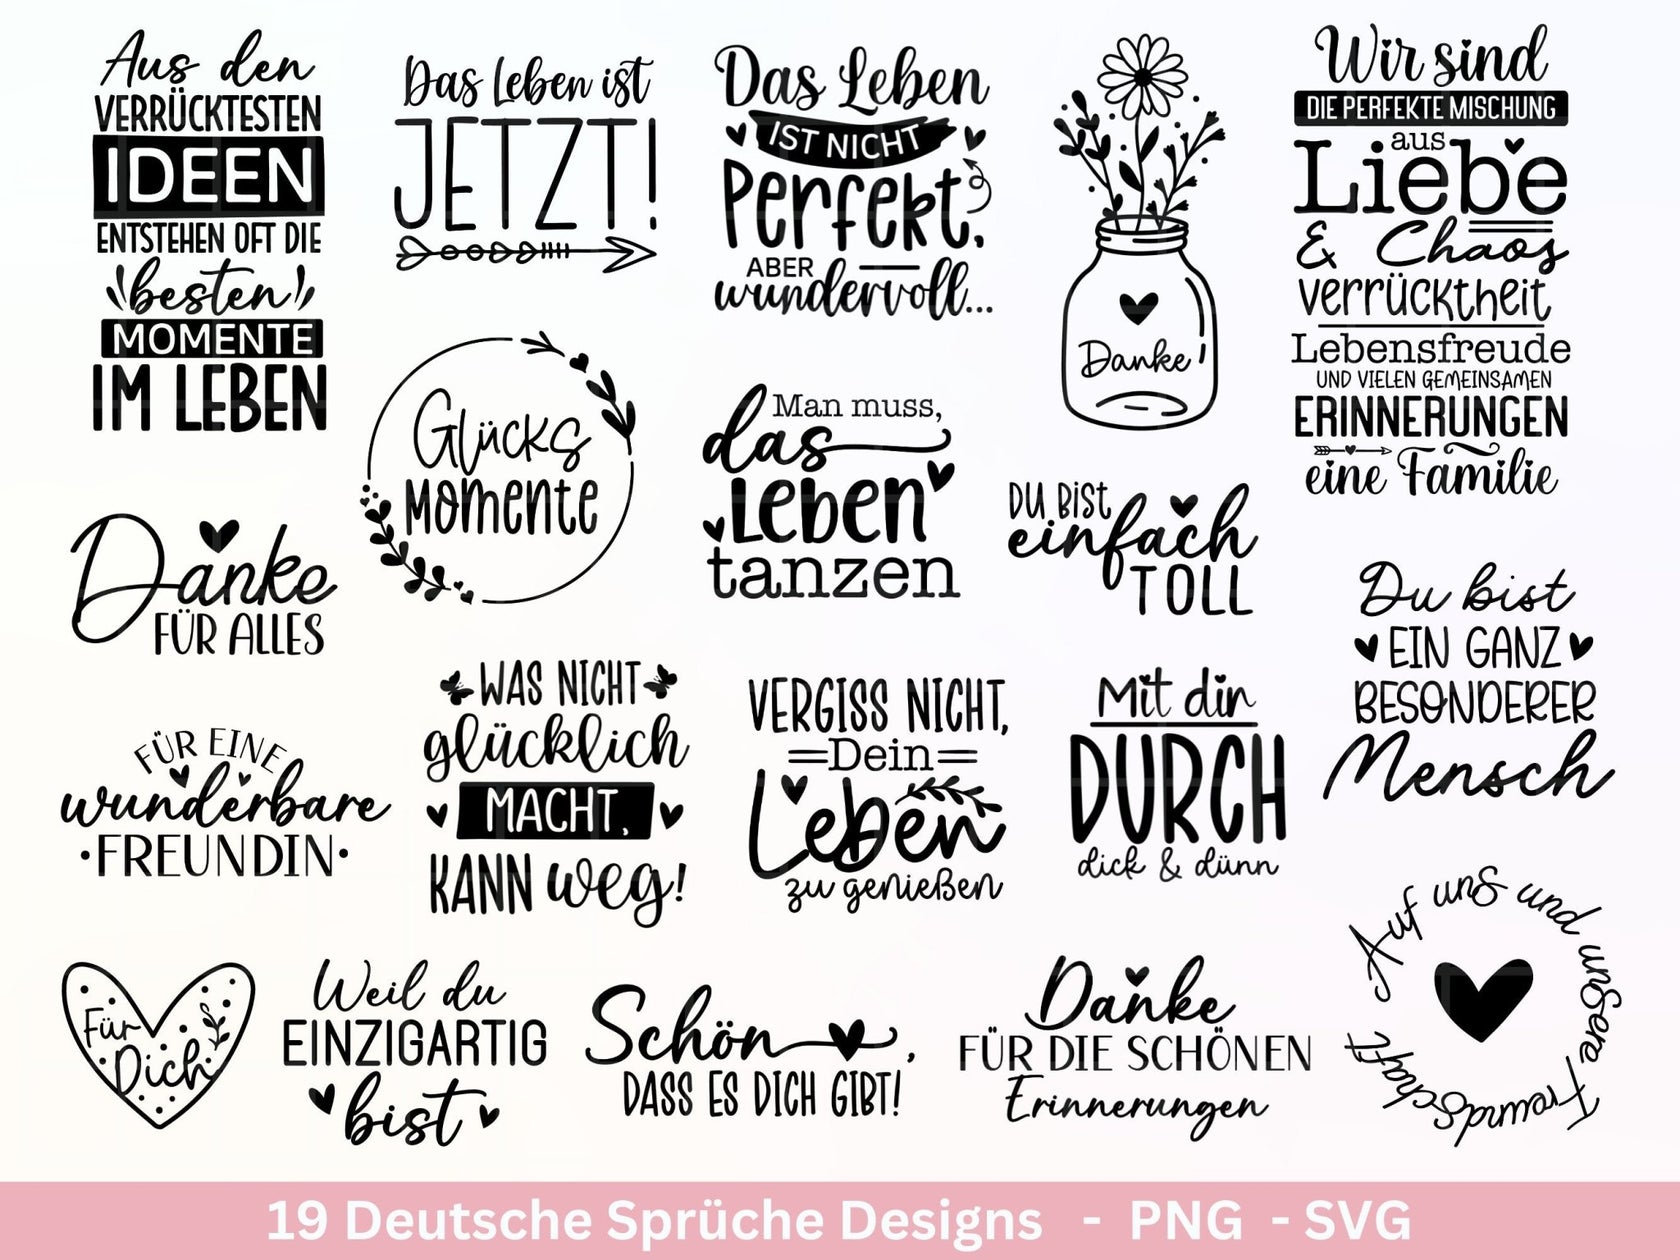 Aus den
VERRÜCKTESTEN
IDEEN
ENTSTEHEN OFT DIE
besten
MOMENTE
IM LEBEN
Das Leben ist
JETZT!
Das Leben
IST NICHT
Perfekt,
ABER
wundervoll...
Danke!
Wir sind
DIE PERFEKTE MISCHUNG
aus
Liebe
& Chaos
verrücktheit
Lebensfreude
UND VIELEN GEMEINSAMEN
ERINNERUNGEN
eine Familie
Glücks
Momente
Man muss,
das
Leben
tanzen
DU BIST
einfach
TOLL
Danke
FÜR ALLES
Du bist
EIN GANZ
BESONDERER
Mensch
FÜR EINE
wunderbare
·FREUNDIN·
WAS NICHT
glücklich
MACHT,
KANN weg!
VERGISS NICHT,
=Dein=
Leben
zu genießen
Mit dir
DURCH
dick & dünn
Auf uns und unsere Freundschaft
Für
Dich
Weil du
EINZIGARTIG
bist
Schön,
DASS ES DICH GIBT!
Danke
FÜR DIE SCHÖNEN
Erinnerungen
19 Deutsche Sprüche Designs - PNG - SVG